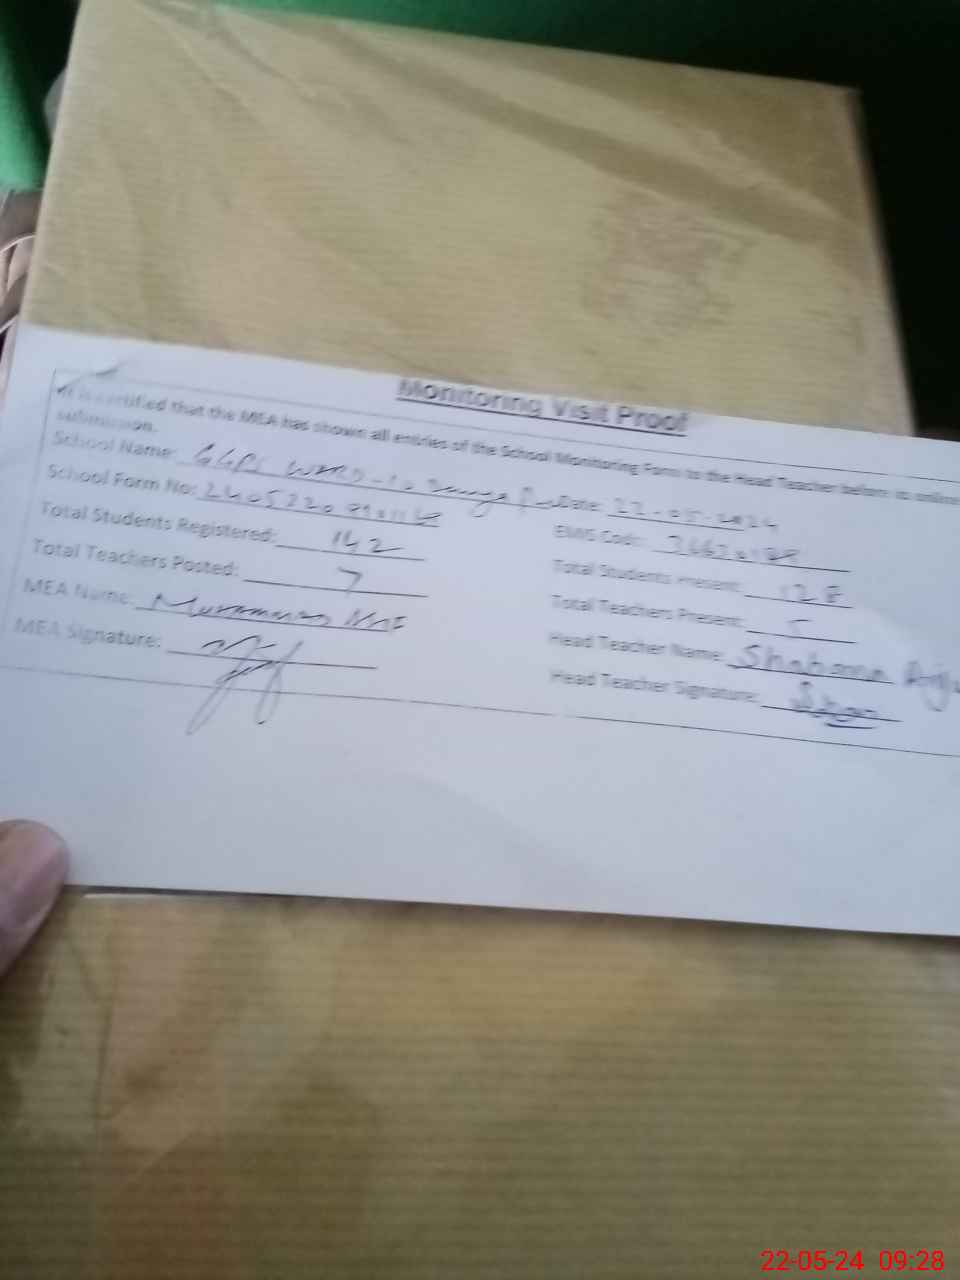 Monitoring Visit Proof
It is certified that the MEA has shown all entries of the School Monitoring Form to the Head Teacher before its online
submission.
School Name: GGPS WARD-10 Date: 22-05-2024
School Form No: EMIS Code:
Total Students Registered: 142 Total Students Present: 128
Total Teachers Posted: 7 Total Teachers Present: 5
MEA Name: Head Teacher Name: Shabana
MEA Signature: Head Teacher Signature:
22-05-24 09:28